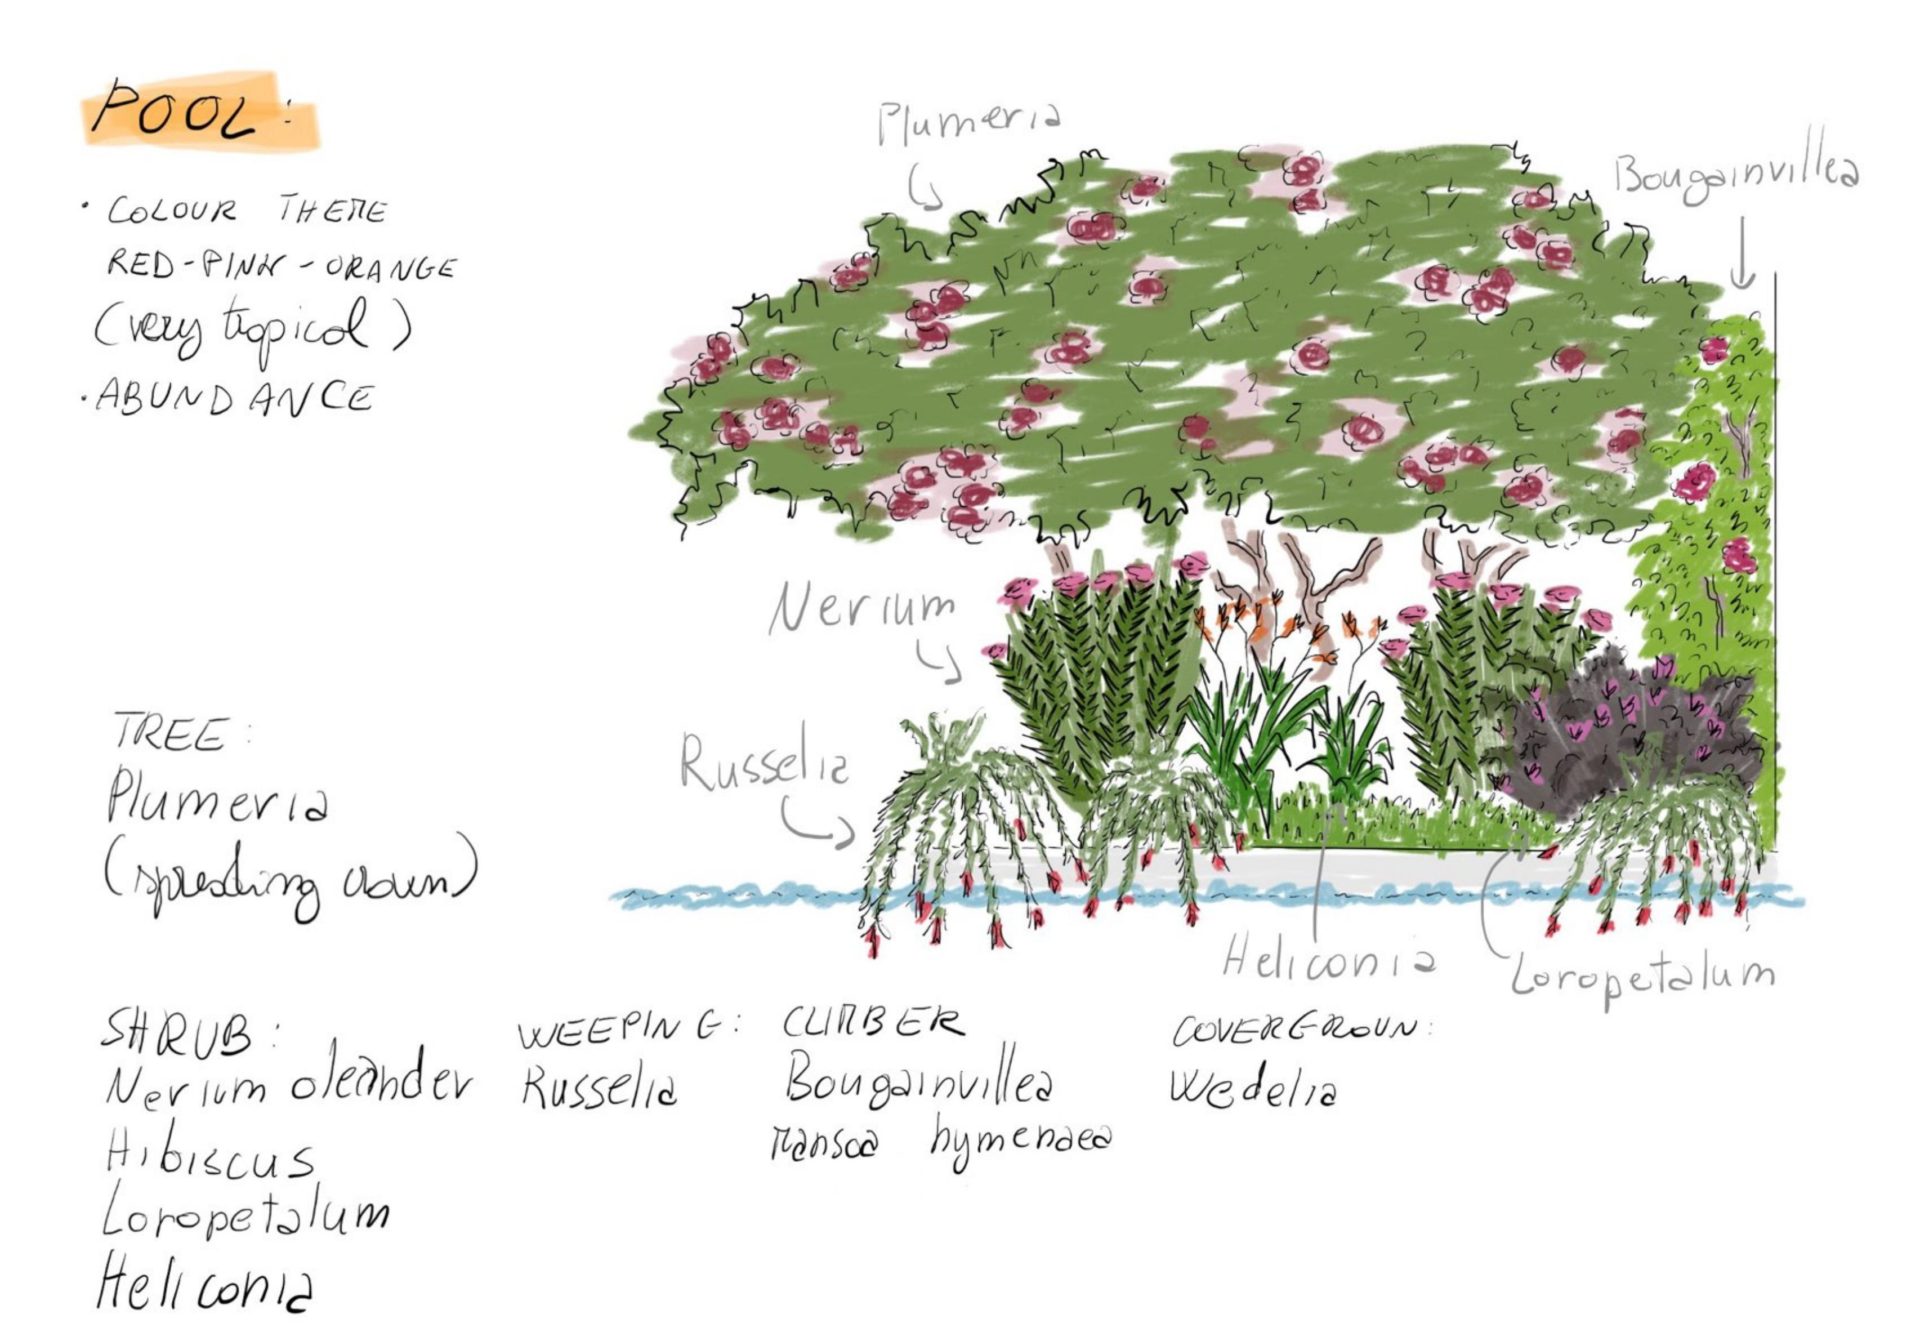 POOL:
· COLOUR THEME
RED-PINK-ORANGE
(very tropical)
· ABUNDANCE
Plumeria
Bougainvillea
Nerium
Russelia
Heliconia
Loropetalum
TREE:
Plumeria
(spreading crown)
SHRUB:
Nerium oleander
Hibiscus
Loropetalum
Heliconia
WEEPING:
Russelia
CLIMBER
Bougainvillea
Mansoa hymenaea
COVERGROUN:
Wedelia